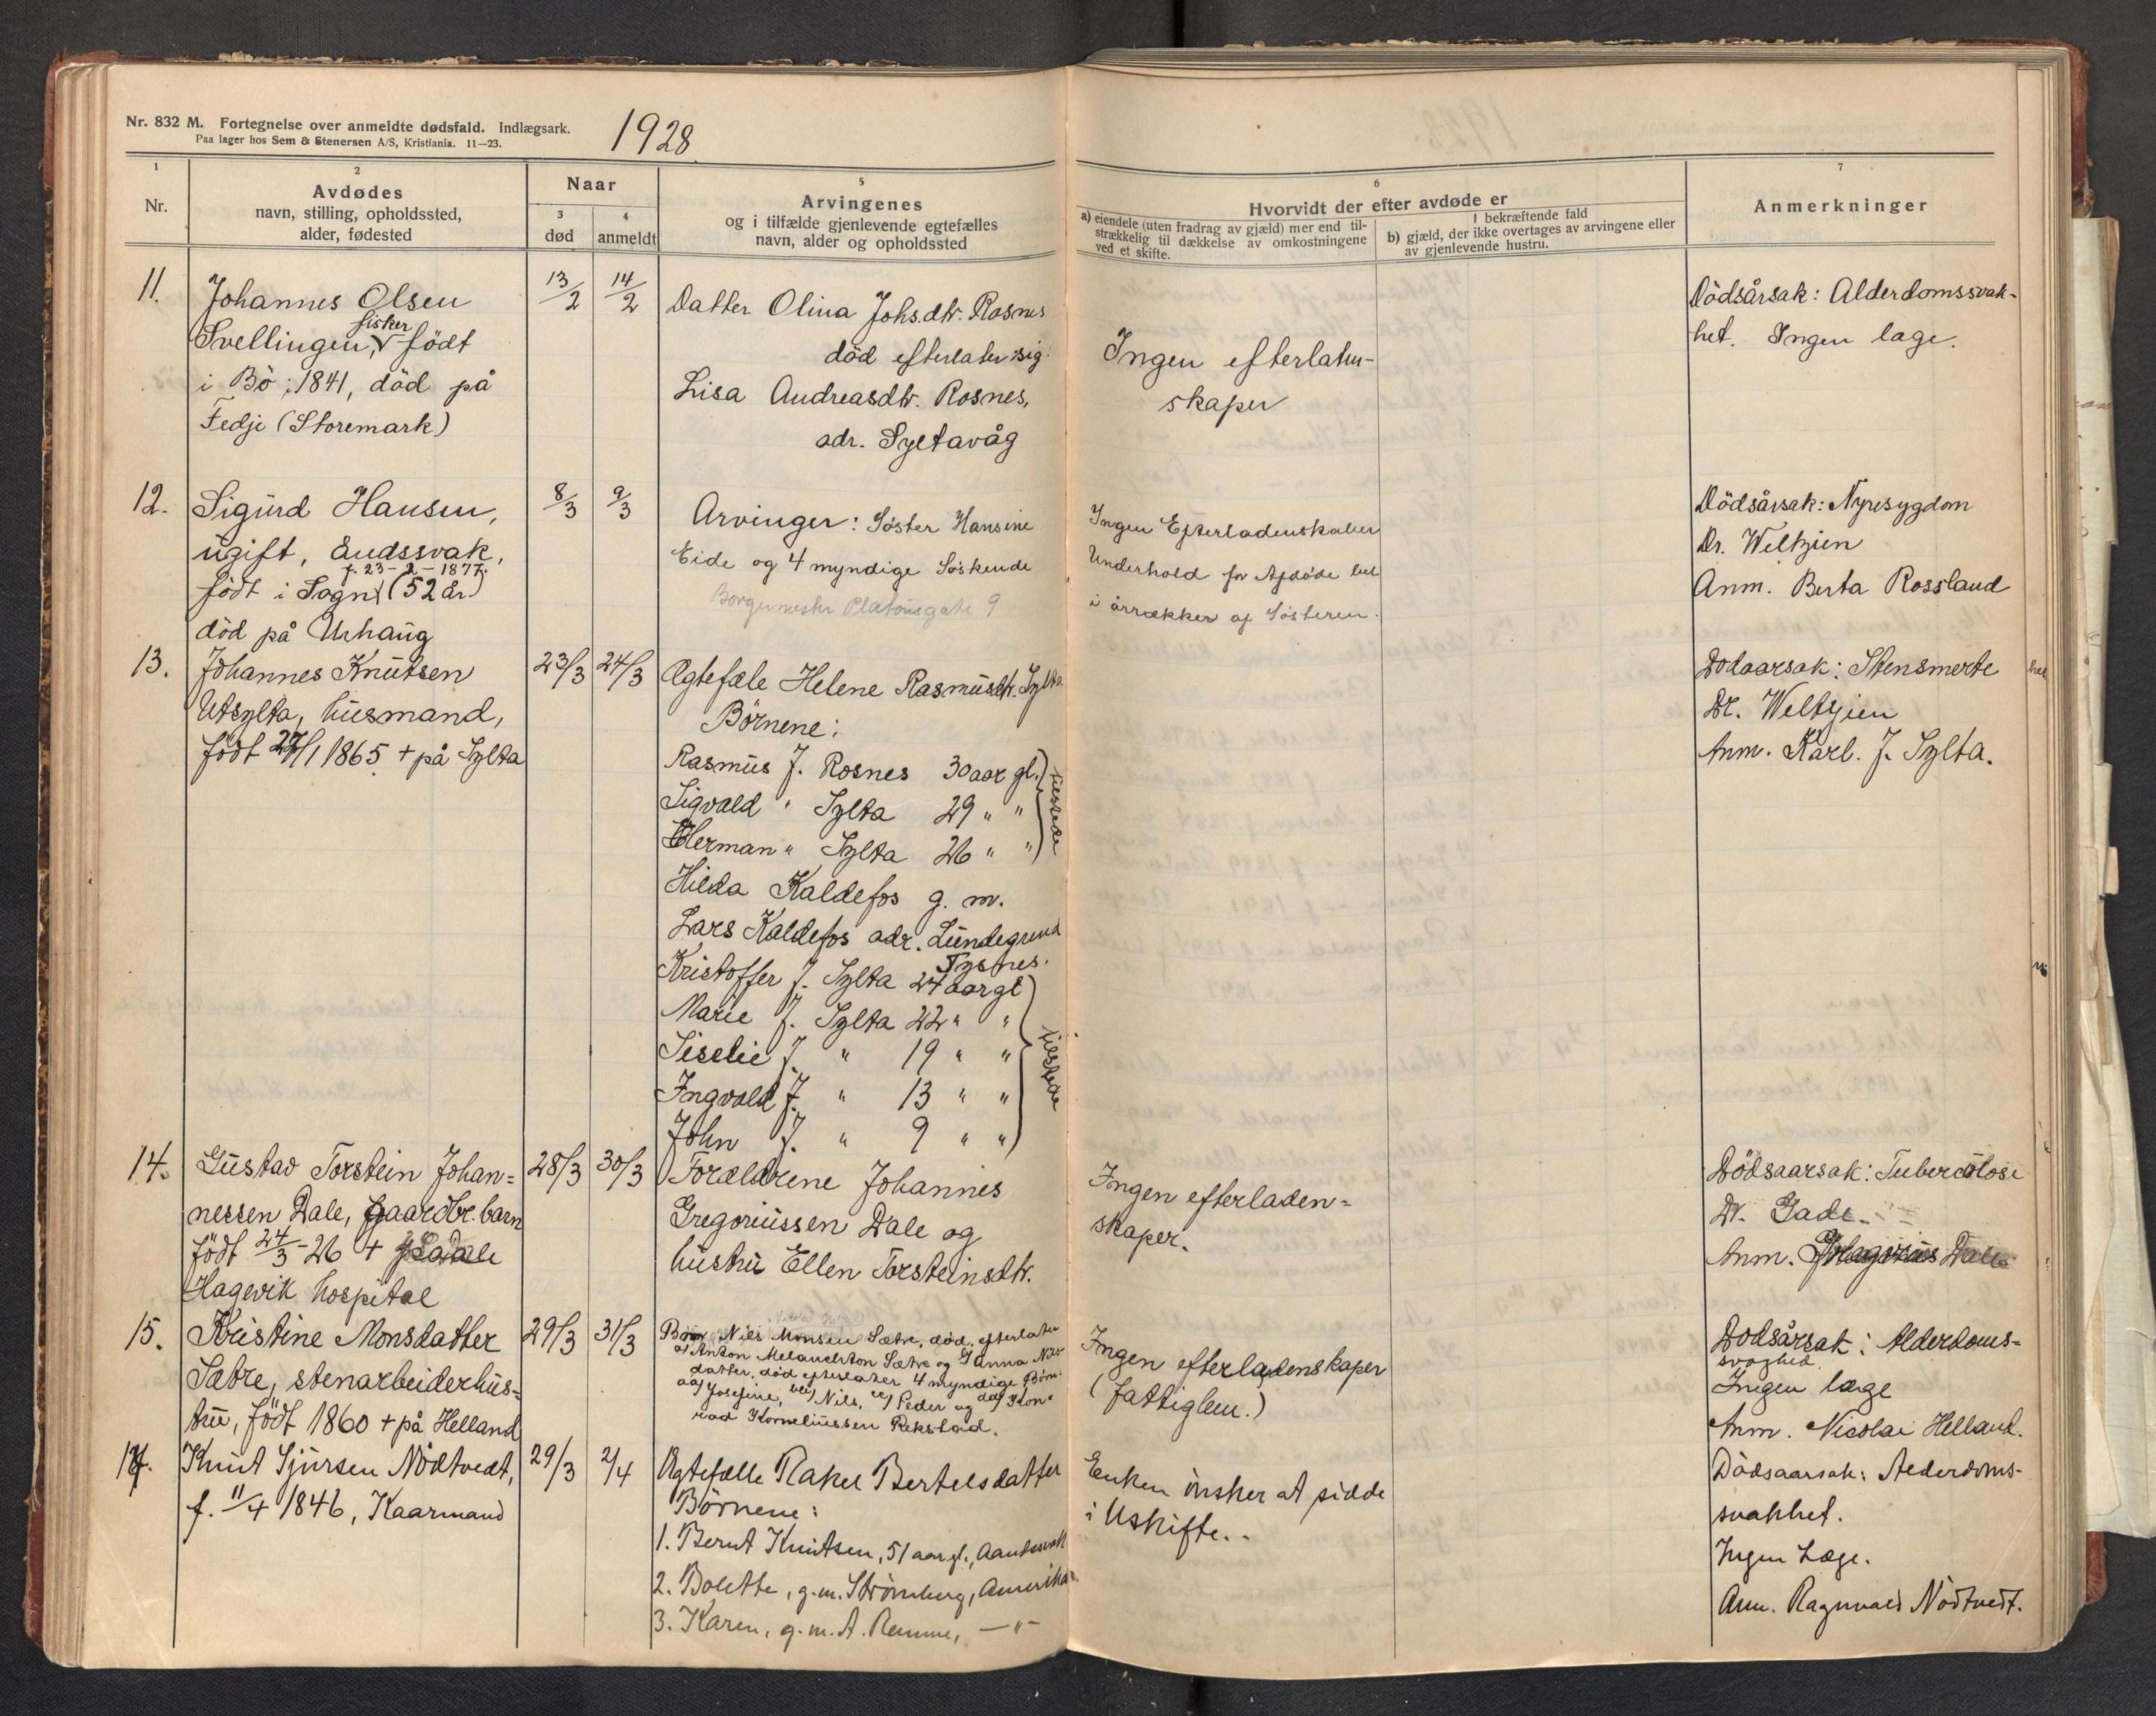 Nr. 832 M. Fortegnelse over anmeldte dødsfald. Indlægsark.
Paa lager hos Sem & Stenersen A/S, Kristiania. 11—23.
1928
1
Nr.
2
Avdødes
navn, stilling, opholdssted,
alder, fødested
Naar
3
død
4
anmeldt
5
Arvingenes
og i tilfælde gjenlevende egtefælles
navn, alder og opholdssted
6
Hvorvidt der efter avdøde er
a) eiendele (uten fradrag av gjæld) mer end til-
strækkelig til dækkelse av omkostningene
ved et skifte.
I bekræftende fald
b) gjæld, der ikke overtages av arvingene eller
av gjenlevende hustru.
7
Anmerkninger
11.
Johannes Olsen
fisker
Svellingen, född
i Bö 1841, död på
Fedje (Storemark)
13/2
14/2
Datter Olina Johs.dtr. Rosnes
död efterlater sig:
Lisa Andreasdtr. Rosnes,
adr. Syltavåg
Ingen efterlaten-
skaper
Dödsårsak: Alderdomssvak-
het. Ingen læge.
12.
Sigurd Hansen,
ugift, åndssvak,
f. 23-2-1877.
född i Sogn (52 år)
död på Urhaug
8/3
9/3
Arvinger: Søster Hansine
Eide og 4 myndige Søskende
Borgermester Platousgate 9
Ingen Efterladenskaber
Underhold for Afdøde
i årrækker af Søsteren.
Dödsårsak: Nyresygdom
Dr. Weltzien
Anm. Berta Rossland
13.
Johannes Knutsen
Utsylta, husmand,
född 27/1 1865 + på Sylta
23/3
24/3
Ægtefæle Helene Rasmusdtr. Sylta
Börnene:
Rasmus J. Rosnes 30 aar gl.
Sigvald " Sylta 29 " "
Herman " Sylta 26 " "
tilstede
Hilda Kaldefos g. m.
Lars Kaldefos adr. Lundegrend
Tysnes.
Kristoffer J. Sylta 24 aar gl
Marie J. Sylta 22 " "
Siselie J. " 19 " "
Ingvald J. " 13 " "
John J. " 9 " "
tilstede
Dödaarsak: Stensmerte
Dr. Weltzien
Anm. Karl. J. Sylta.
14.
Gustav Torstein Johan=
nessen Dale, gaardbr. barn
född 24/3-26 +
Hagevik hospital
28/3
30/3
Forældrene Johannes
Gregoriussen Dale og
hustru Ellen Torsteinsdtr.
Ingen efterladen=
skaper.
Dödsaarsak: Tuberculose
Dr. Gade
Anm. Dale
15.
Kristine Monsdatter
Sætre, stenarbeiderhus=
tru, född 1860 + på Helland
29/3
31/3
Barn Nils Monsen Sætre, död, efterlater
a) Anton Melanchton Sætre og Janna Nils-
datter, död efterlater 4 myndige Börn:
aa) Josefine, bb) Nils, cc) Peder og dd) Kon=
rad Korneliussen Rekstad.
Ingen efterladenskaper
(fattiglem.)
Dödsårsak: Alderdoms=
svaghed
Ingen læge
Anm. Nicolai Helland.
17.
Knut Sjursen Nödtvedt,
f. 11/4 1846, Kaarmand
29/3
2/4
Ægtefælle Rakel Bertelsdatter
Börnene:
1. Bernt Knutsen, 51 aar gl., Aandssvak
2. Bolette, g.m. Strömberg, Amerika
3. Karen, g.m. A. Remme, — " —
Enken önsker at sidde
i Uskifte.
Dödsaarsak: Alderdoms-
svakhet.
Ingen Læge.
Anm. Ragnvald Nödtvedt.